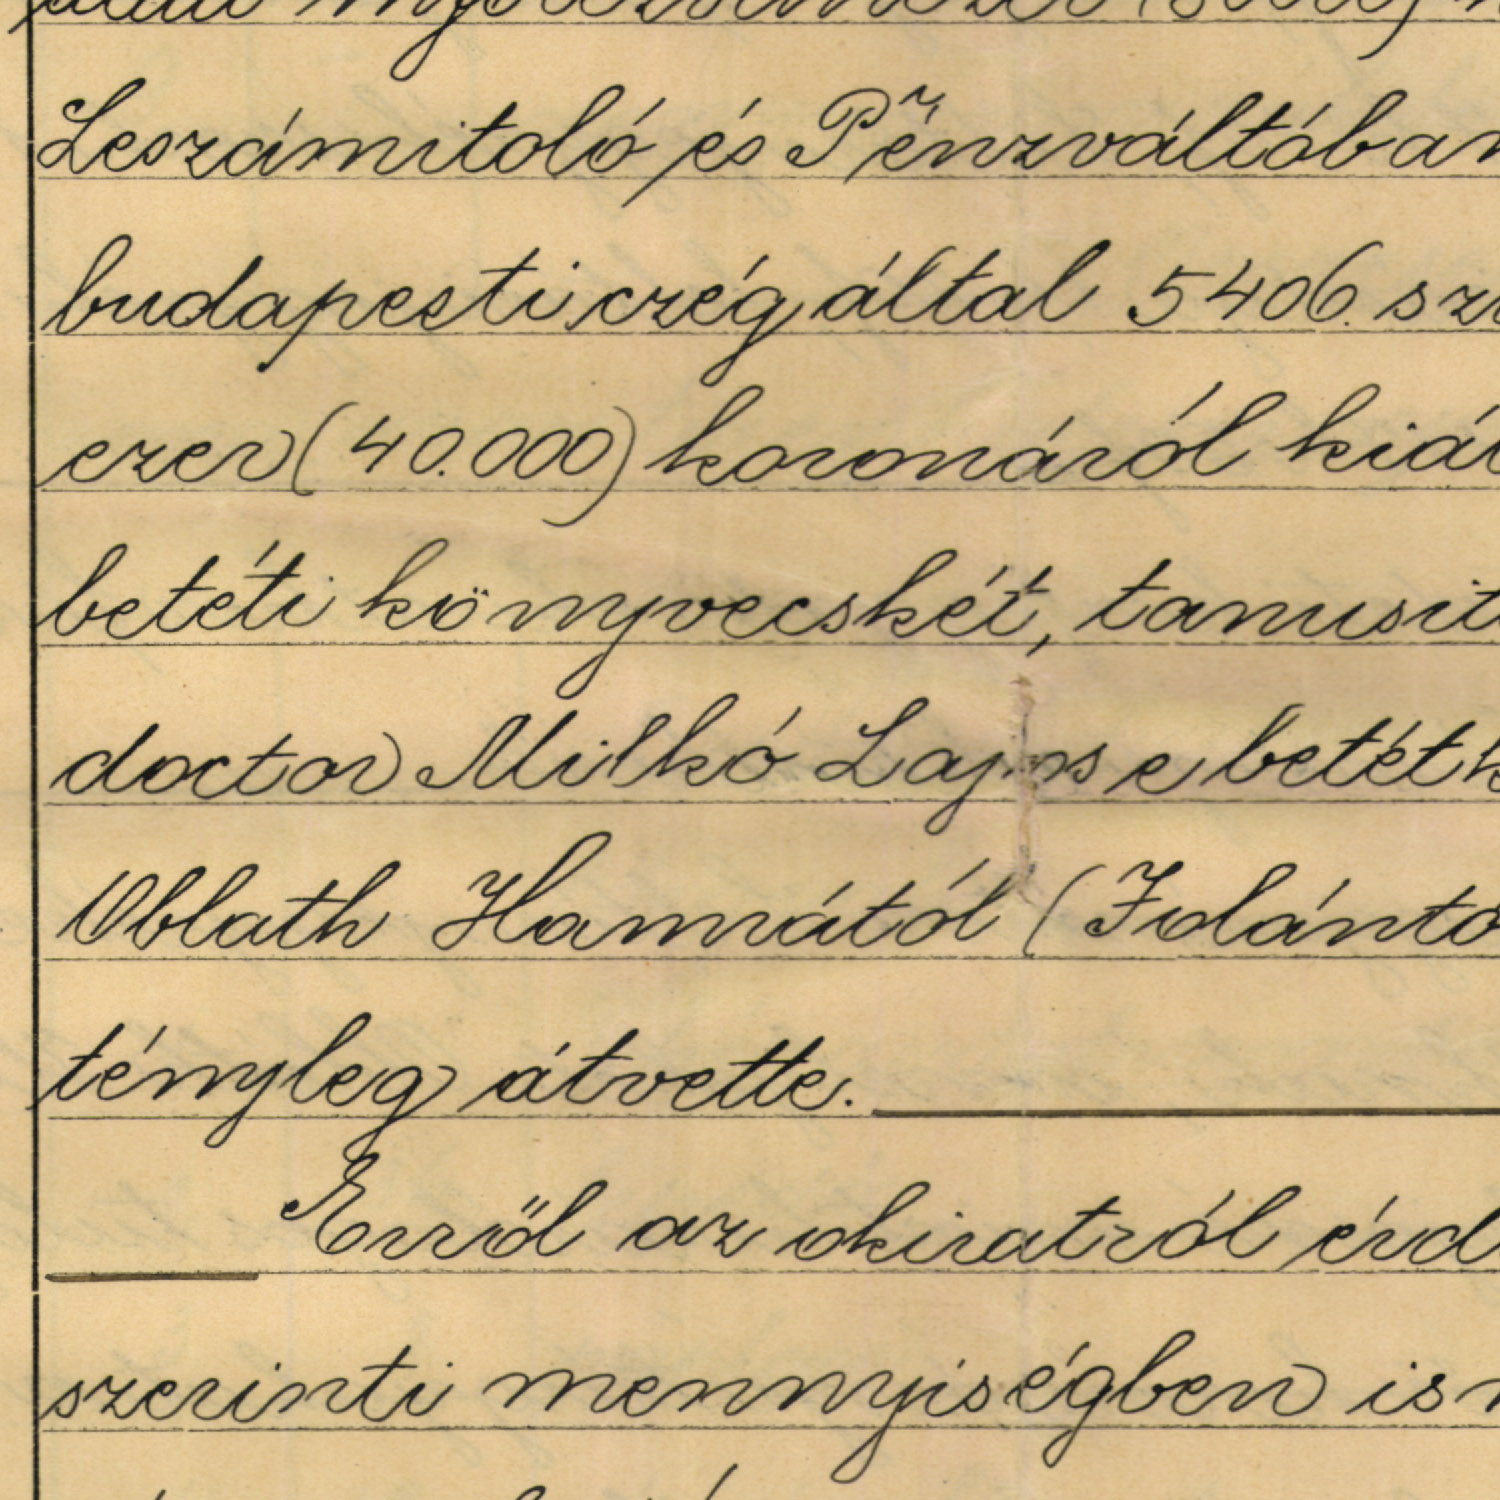 Leszámitoló és Pénzváltóban
budapesti czég által 5406. sz
ezer (40.000) koronáról kiá
betéti könyvecskét, tanusit
doctor Milkó Lajos e betétk
Oblath Hannától (Jolántó
tényleg átvette.
Erről az okiratról érd
szerinti mennyiségben is